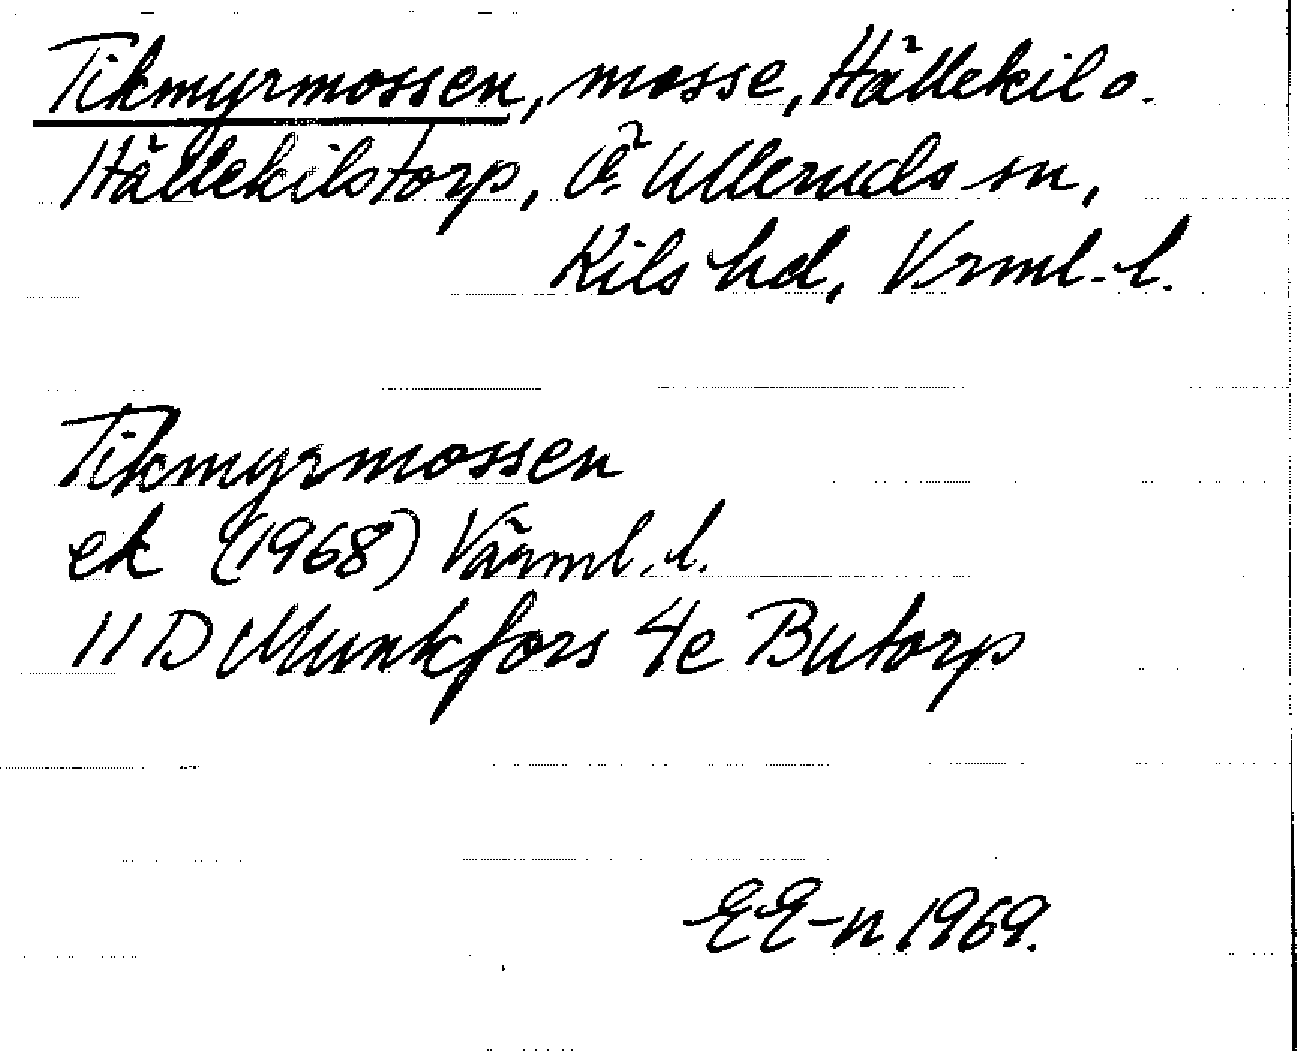 Tikmyrmossen, mosse, Hällekil o.
Hällekilstorp, Ö. Ulleruds sn,
Kils hd, Vrml. l.
Tikmyrmossen
ek (1968) Värml. l.
11 D Munkfors 4e Butorp
EE-n 1969.